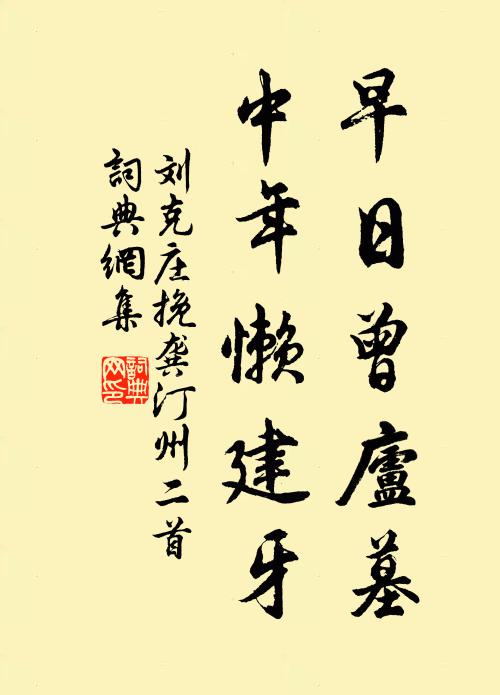 早日曾廬墓
中年懶建牙
刘克庄挽龚汀州二首
詞典網集
詞典网印